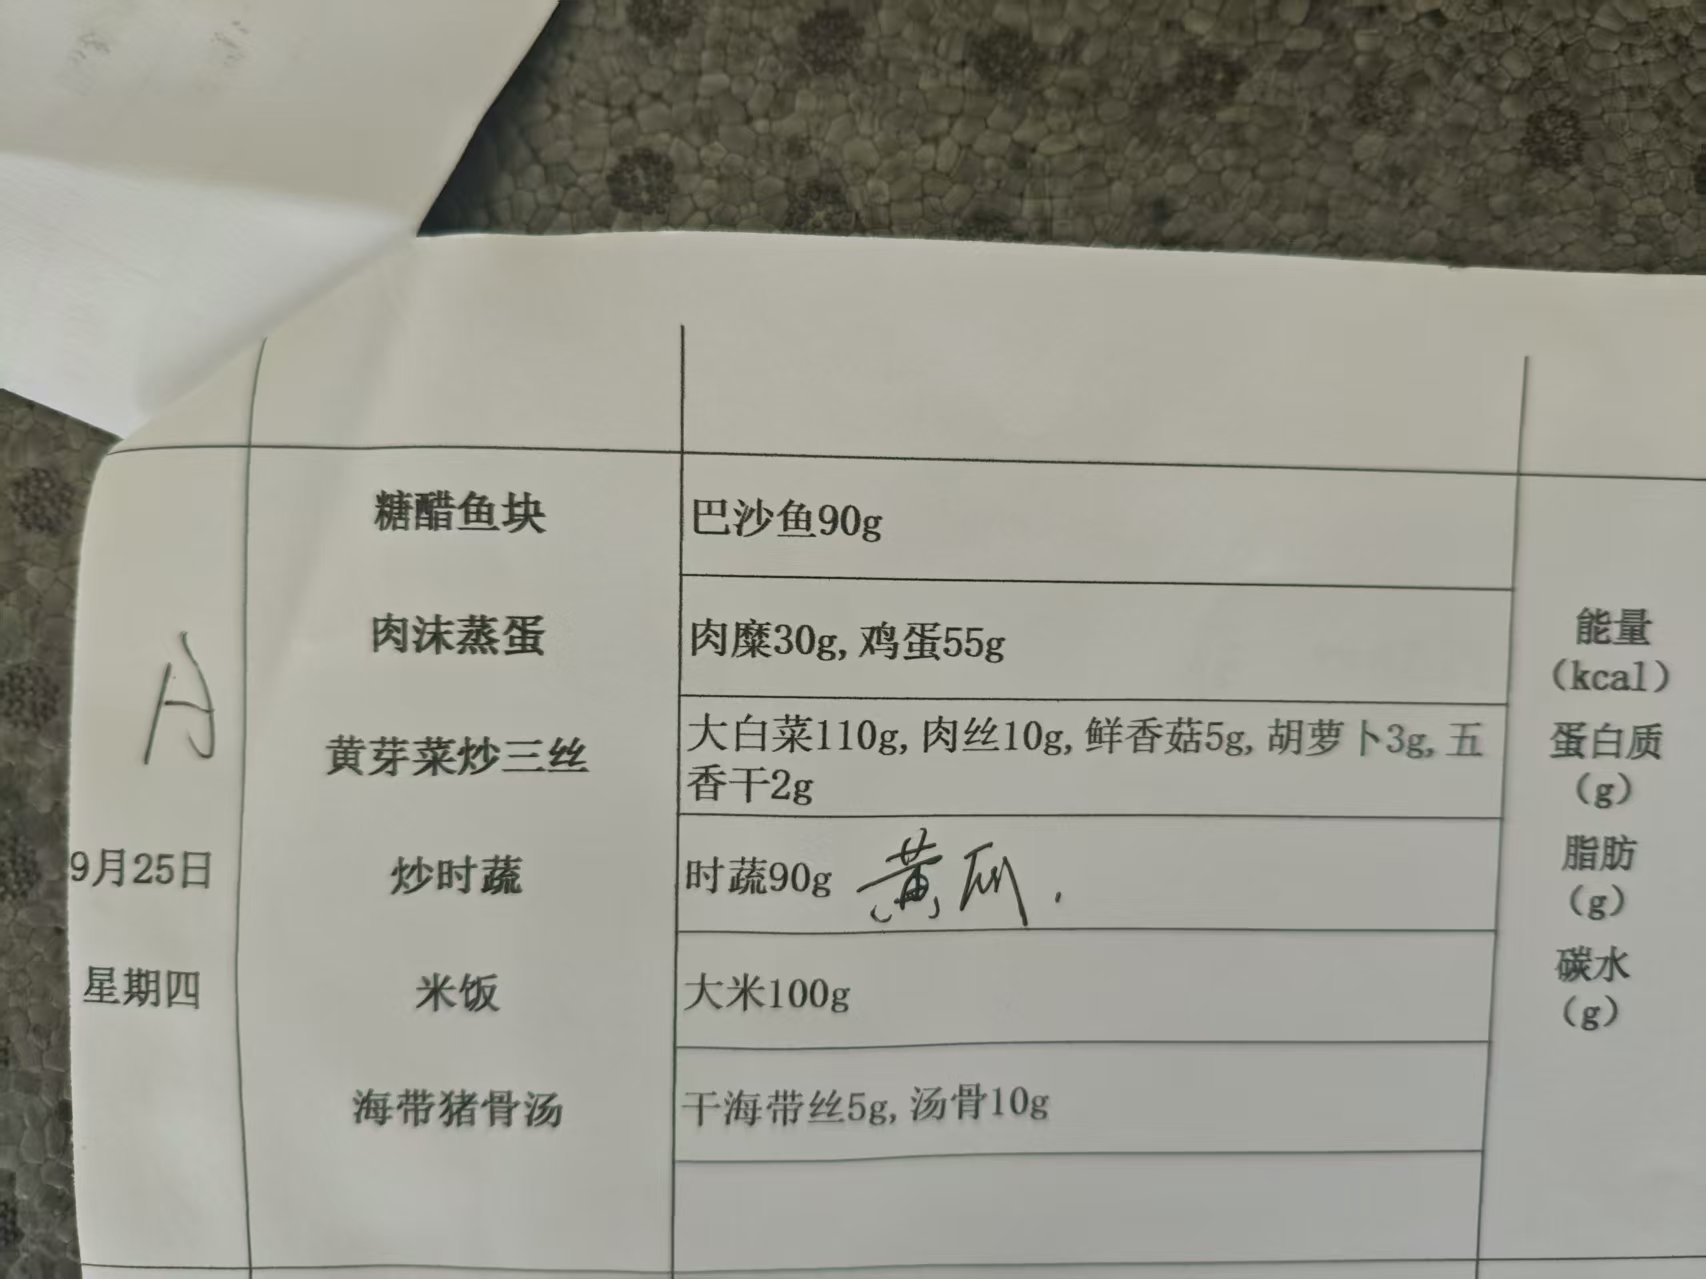 糖醋鱼块
巴沙鱼90g
肉沫蒸蛋
肉糜30g, 鸡蛋55g
A
黄芽菜炒三丝
大白菜110g, 肉丝10g, 鲜香菇5g, 胡萝卜3g, 五
香干2g
9月25日
炒时蔬
时蔬90g 黄瓜.
星期四
米饭
大米100g
海带猪骨汤
干海带丝5g, 汤骨10g
能量
(kcal)
蛋白质
(g)
脂肪
(g)
碳水
(g)